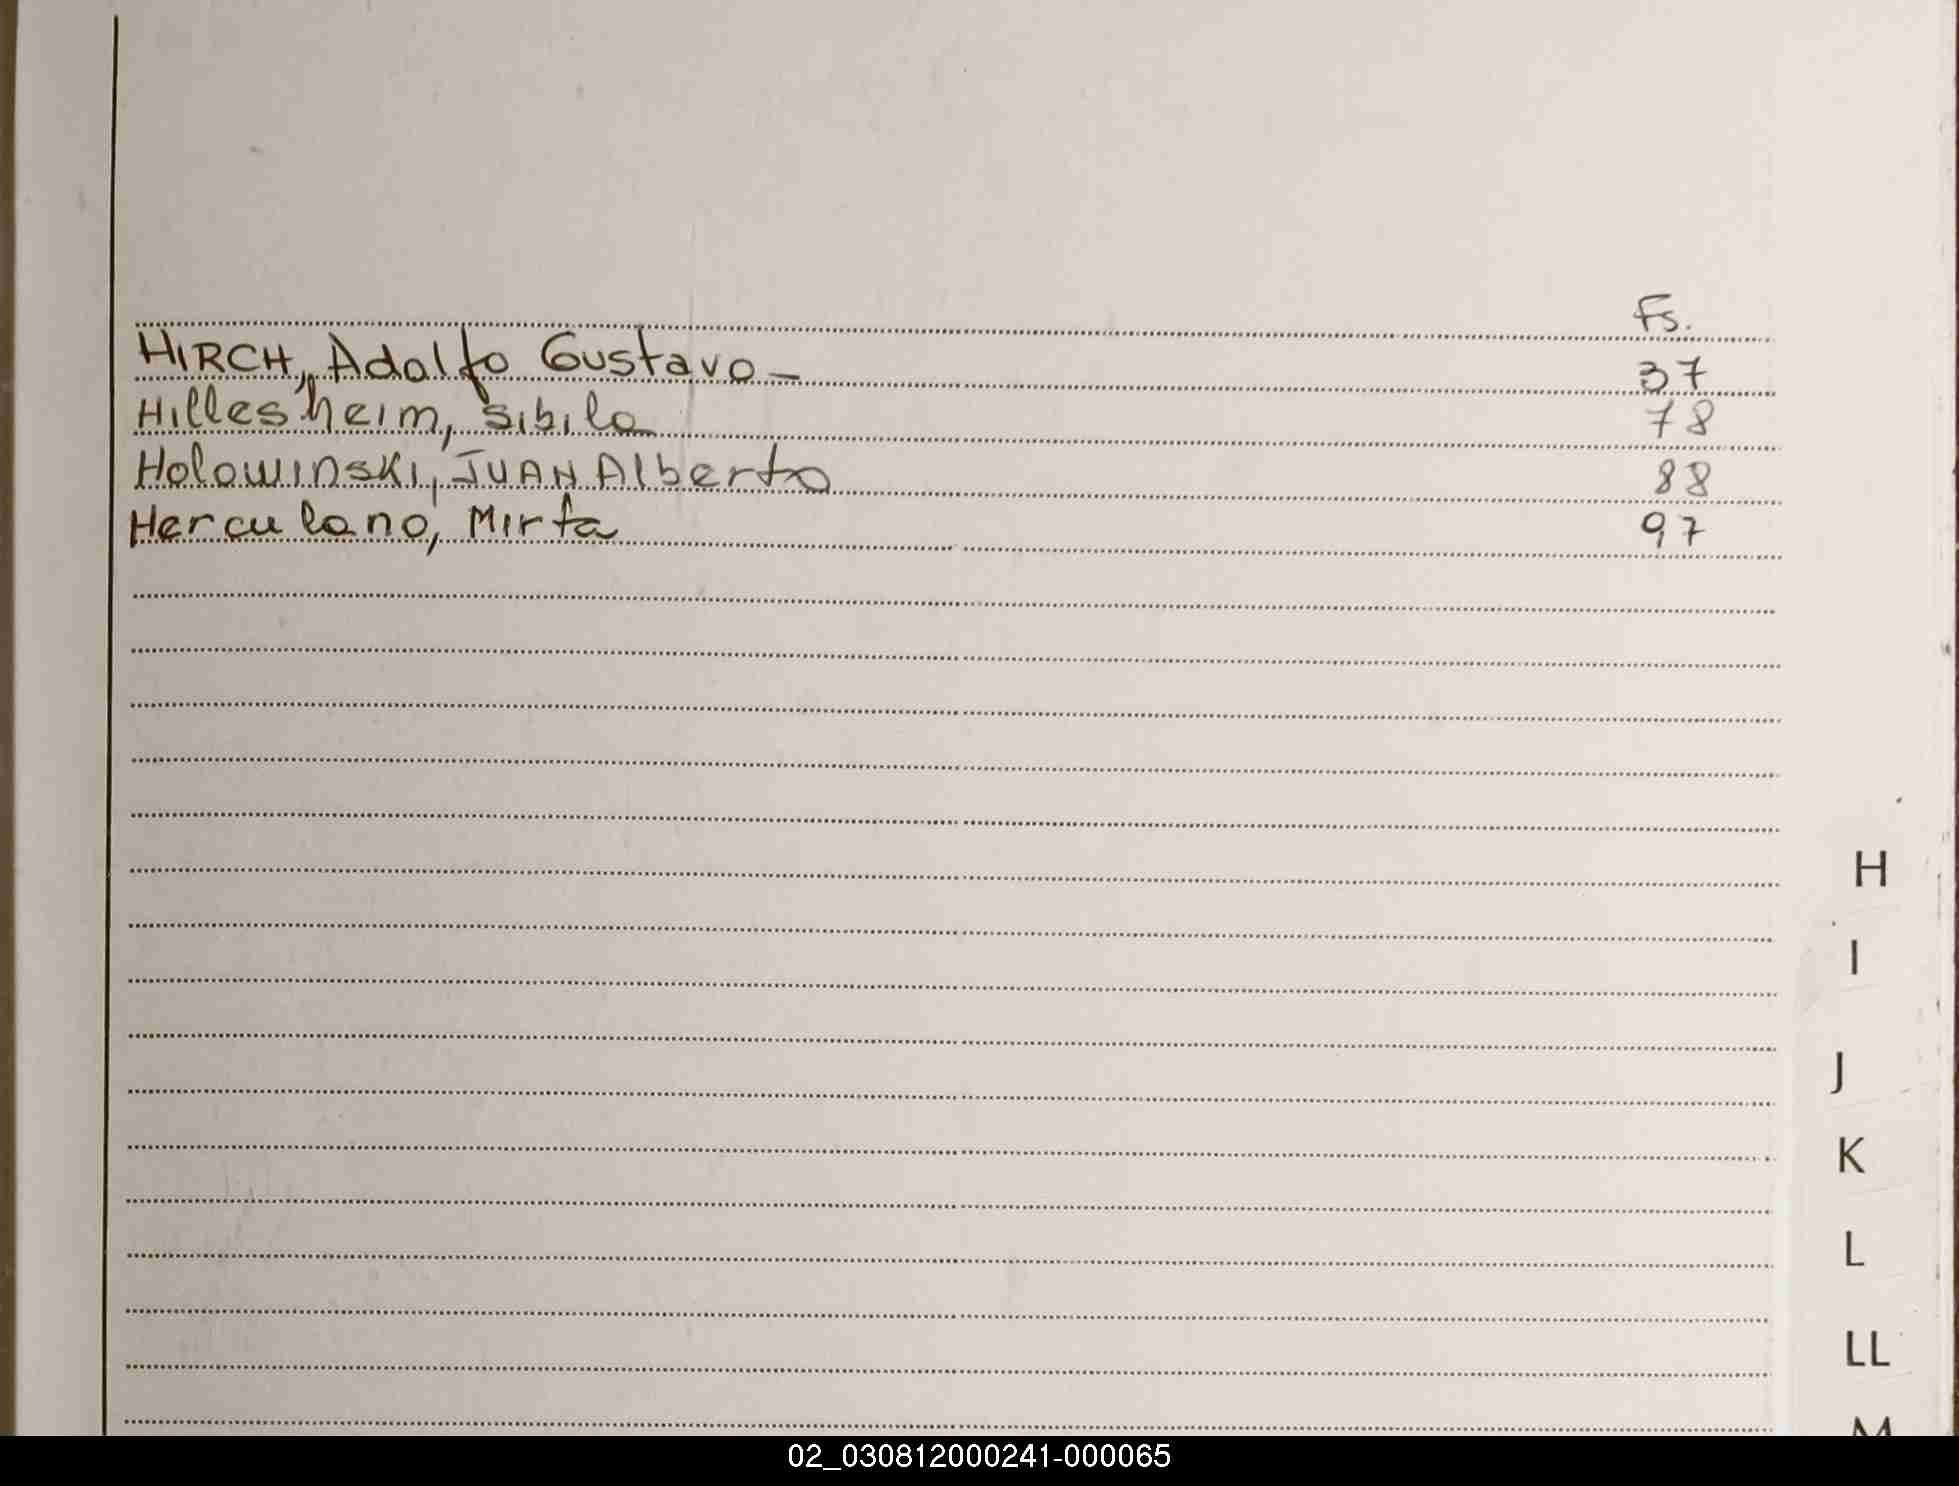 Fs.
HIRCH, Adolfo Gustavo - 37
Hillesheim, Sibila 78
Holowinski, JUAN Alberto 88
Herculano, Mirta 97
H
I
J
K
L
LL
M
02_030812000241-000065